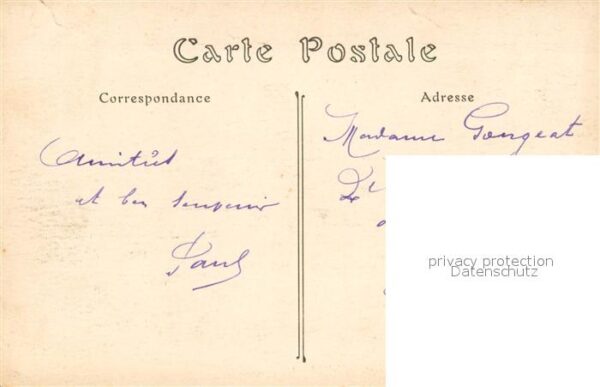 Carte Postale
Correspondance
Adresse
Amitiés
et bon souvenir
Paul
Madame
privacy protection
Datenschutz